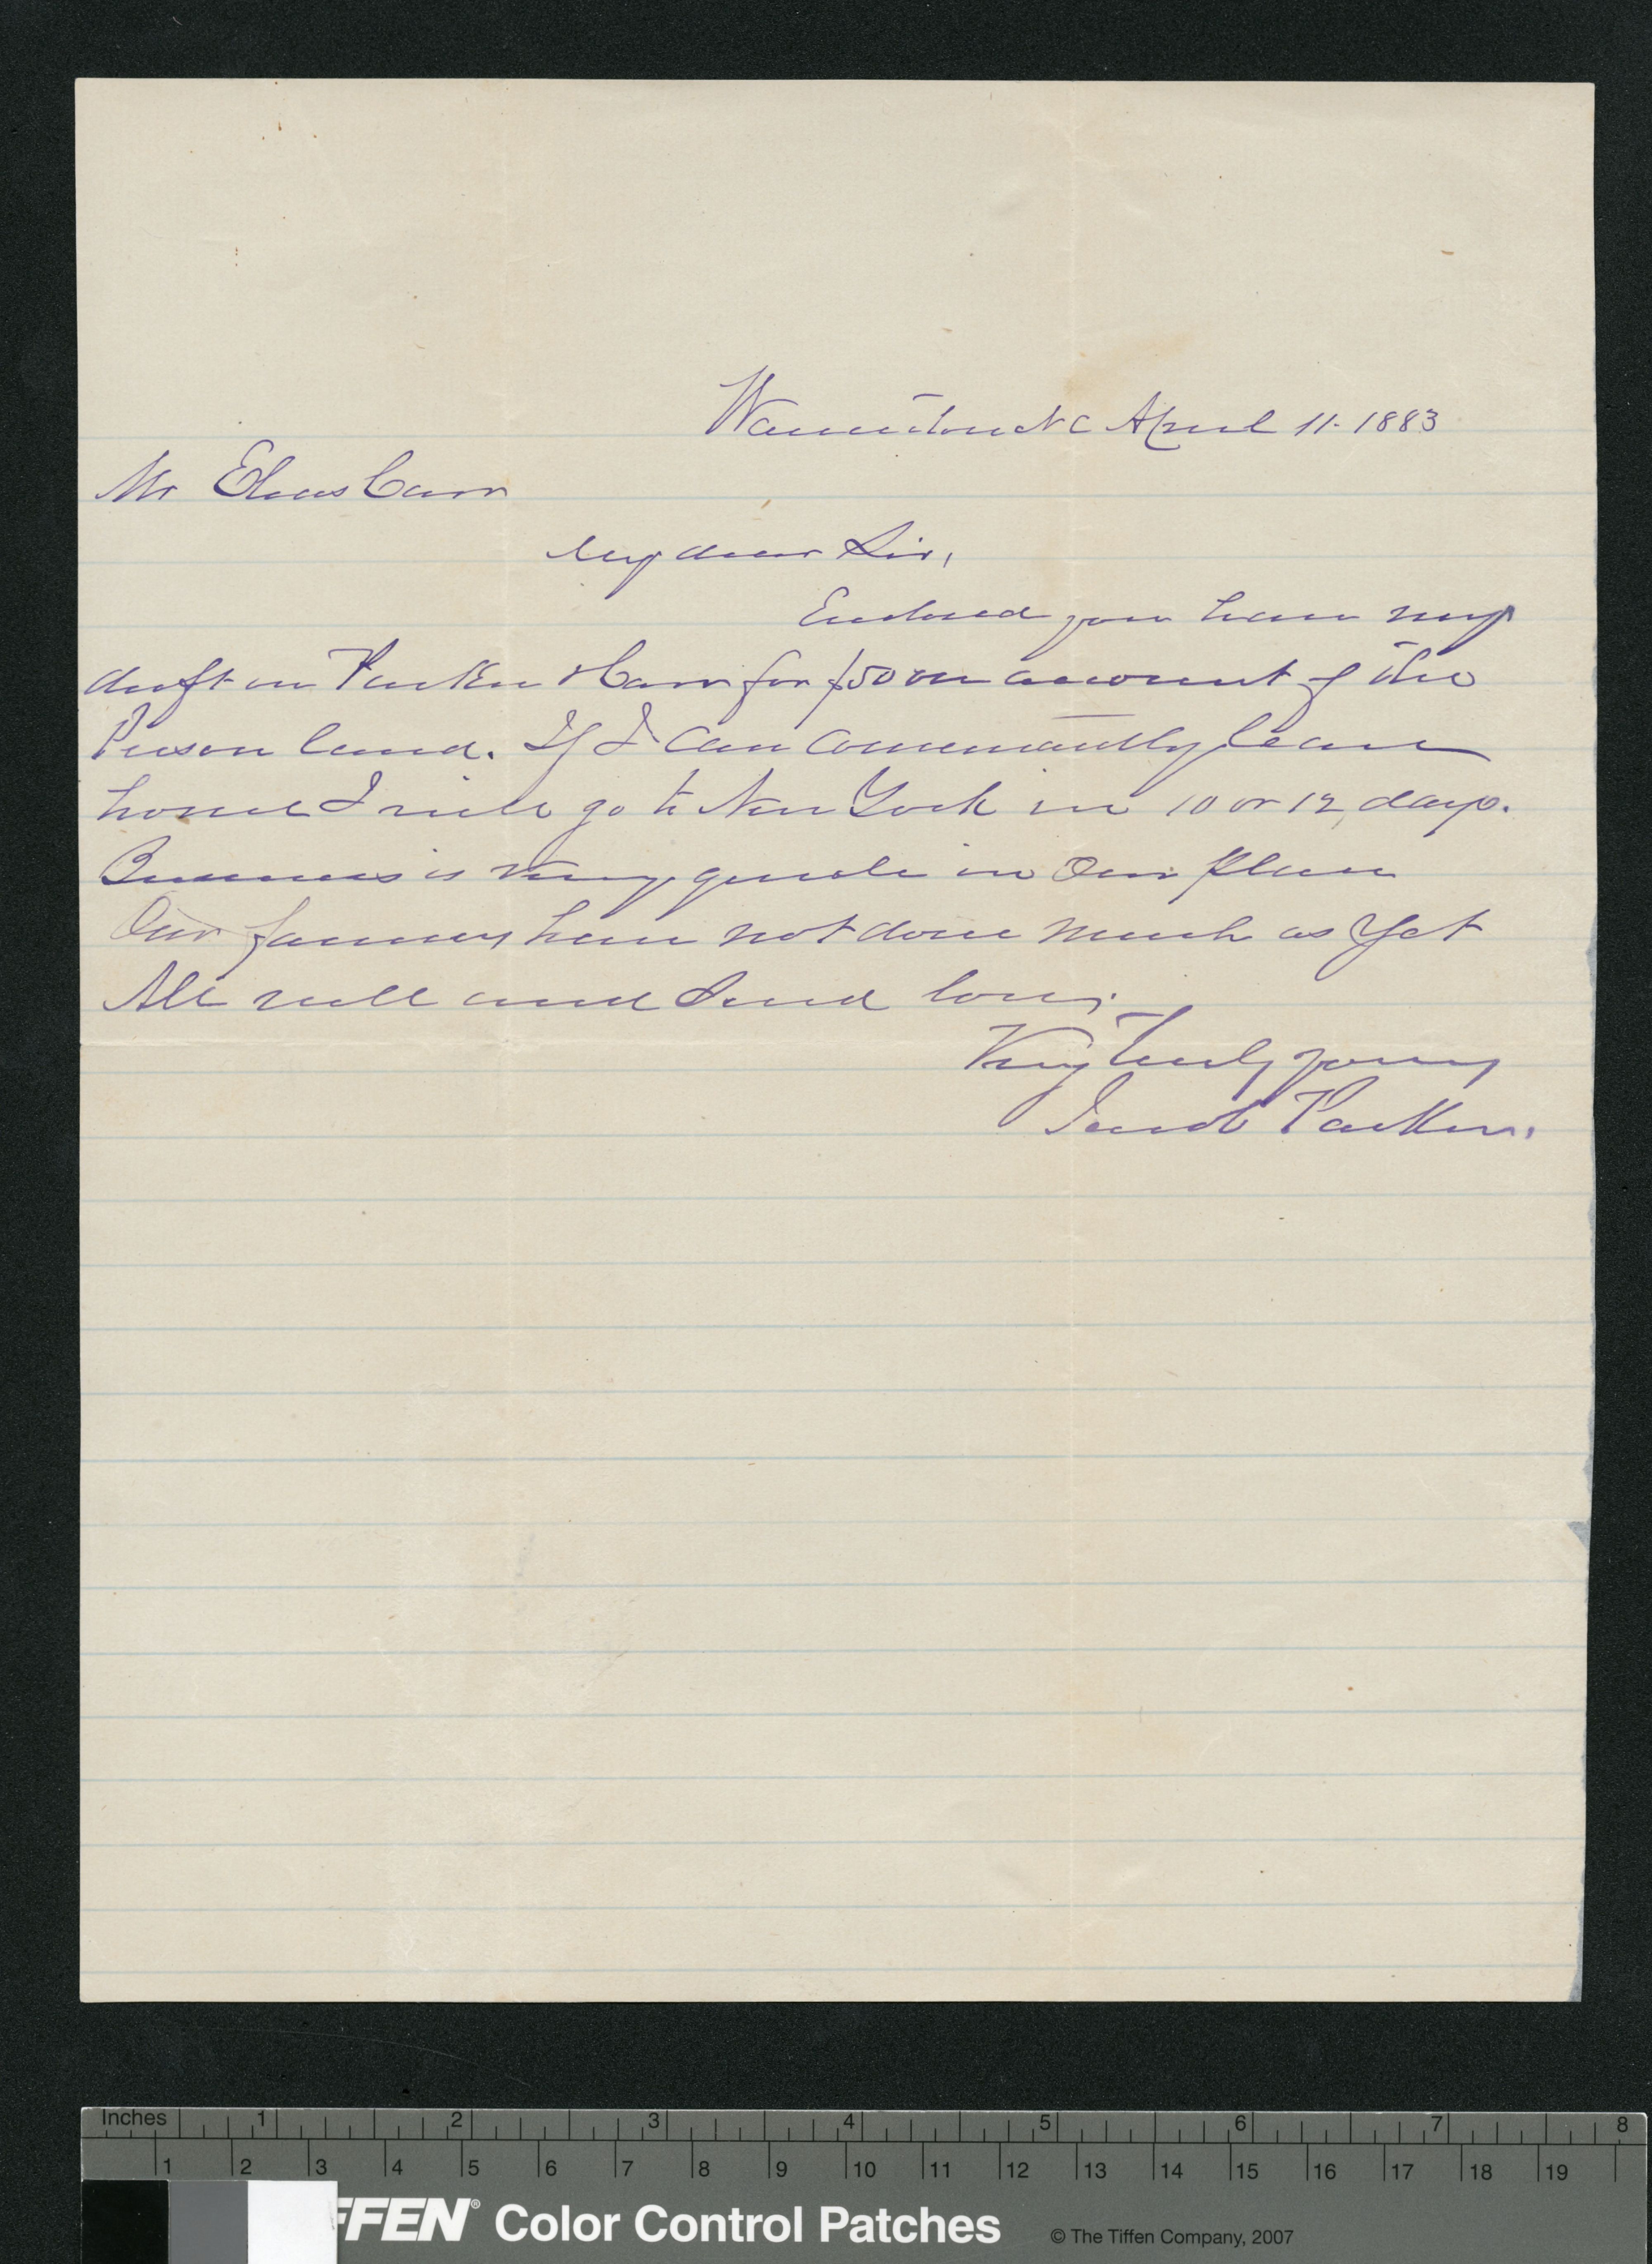 Warrenton N C April 11. 1883
Mr Elias Carr
My dear Sir,
Enclosed you have my
draft on Parker & Carr for $50 on account of the
Person land. If I can conveniently leave
home I will go to New York in 10 or 12 days.
Business is very quiet in our place
Our farmers have not done much as yet
All well and send love,
Very truly yours
Jacob Parker.
Inches 1 2 3 4 5 6 7 8
1 2 3 4 5 6 7 8 9 10 11 12 13 14 15 16 17 18 19
FFEN® Color Control Patches © The Tiffen Company, 2007